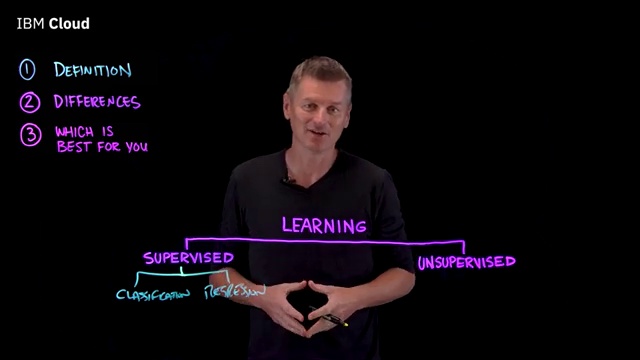 IBM Cloud
1 DEFINITION
2 DIFFERENCES
3 WHICH IS
BEST FOR YOU
LEARNING
SUPERVISED
UNSUPERVISED
CLASSIFICATION REGRESSION